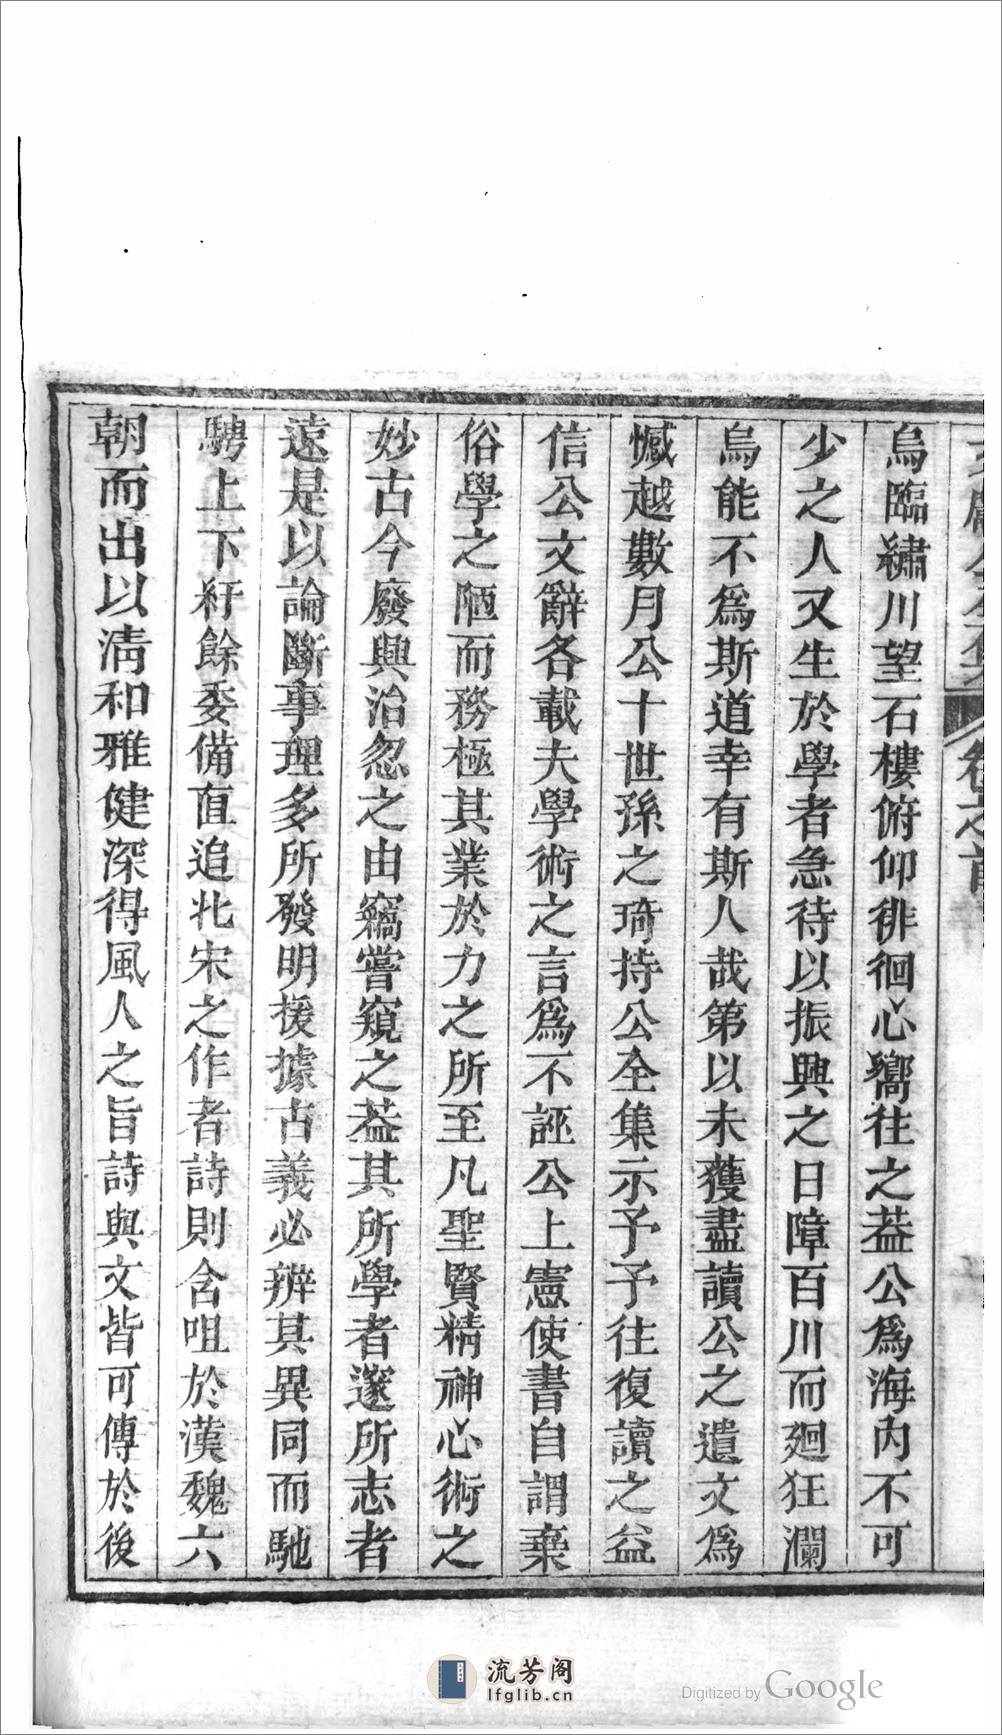 卷之首
烏臨繡川望石樓俯仰徘徊心嚮往之葢公爲海內不可
少之人又生於學者急待以振興之日障百川而廻狂瀾
烏能不爲斯道幸有斯人哉第以未獲盡讀公之遺文爲
憾越數月公十世孫之琦持公全集示予予往復讀之益
信公文辭各載夫學術之言爲不誣公上憲使書自謂棄
俗學之陋而務極其業於力之所至凡聖賢精神心術之
妙古今廢興治忽之由竊嘗窺之葢其所學者邃所志者
遠是以論斷事理多所發明援據古義必辨其異同而馳
騁上下紆餘委備直追北宋之作者詩則含咀於漢魏六
朝而出以淸和雅健深得風人之旨詩與文皆可傳於後
流芳阁
lfglib.cn
Digitized by Google